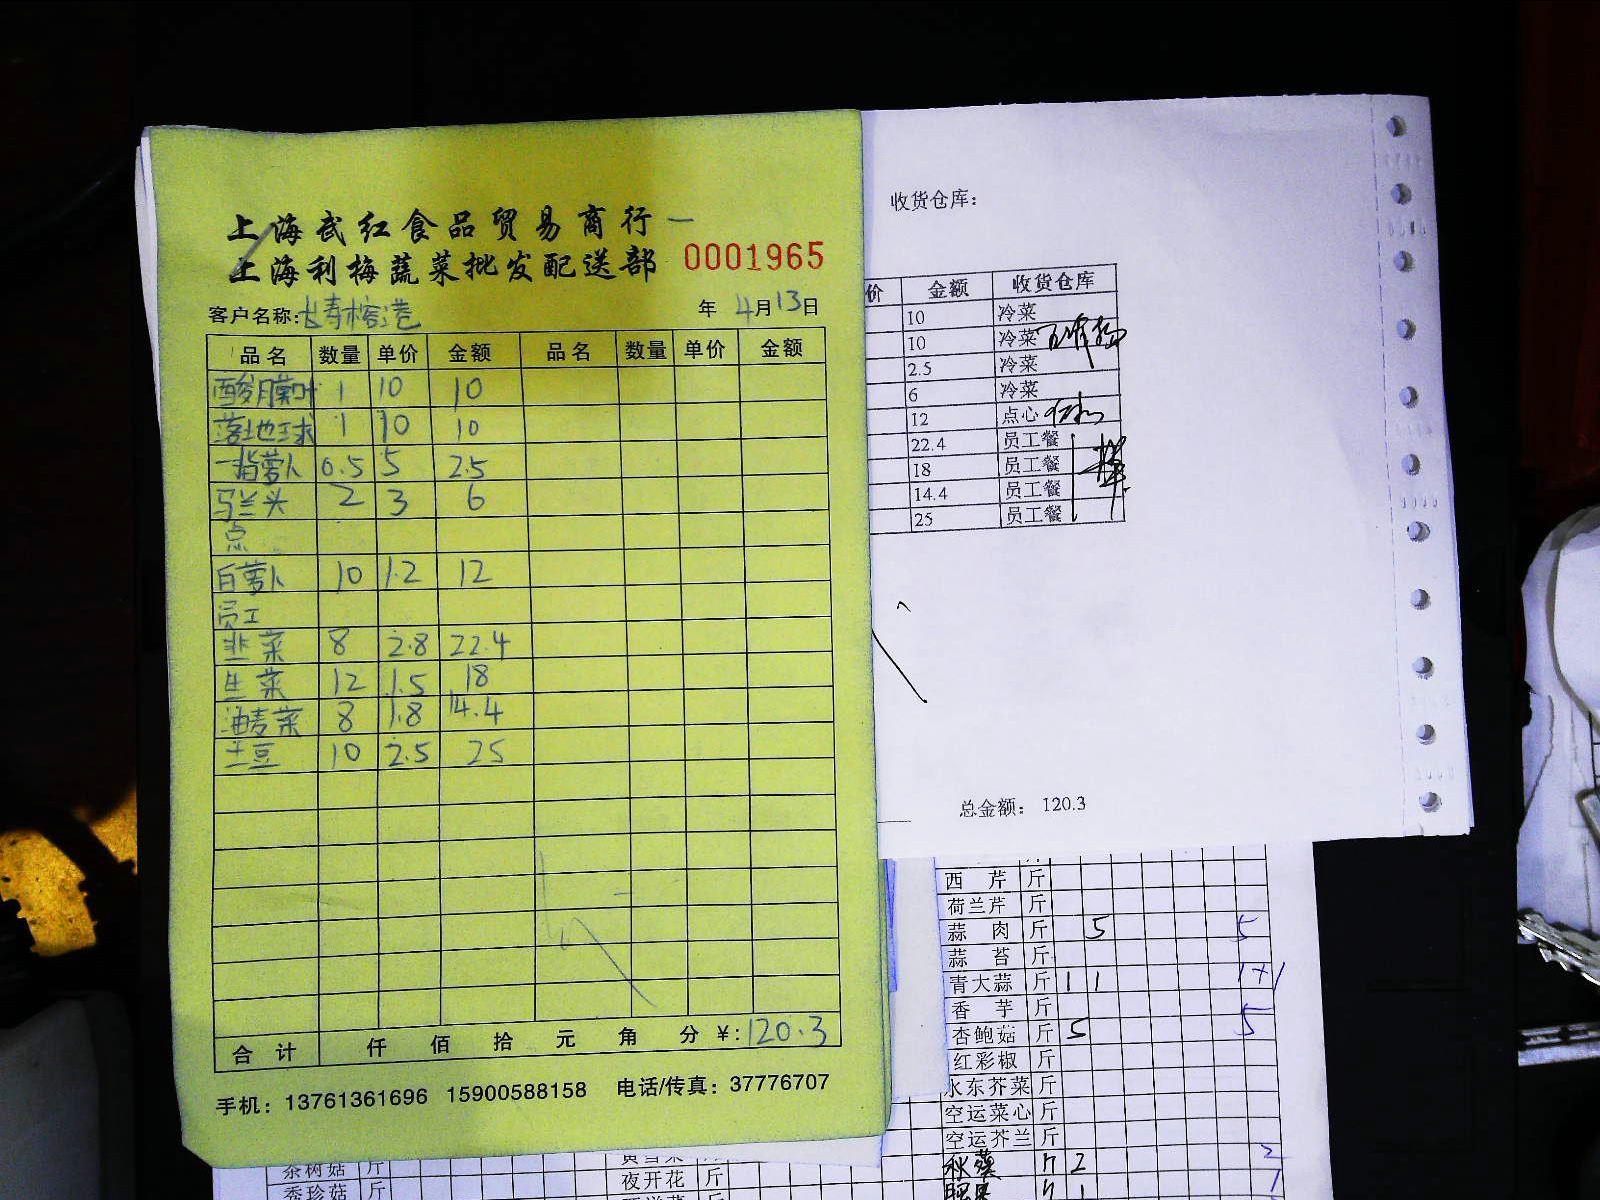 上海武红食品贸易商行
上海利梅蔬菜批发配送部 0001965
客户名称:长寿榕港 年 4月13日
品名 数量 单价 金额 品名 数量 单价 金额
酸模叶 1 10 10
落地球 1 10 10
一指萝卜 0.5 5 2.5
马兰头 2 3 6
点
白萝卜 10 1.2 12
员工
韭菜 8 2.8 22.4
生菜 12 1.5 18
油麦菜 8 1.8 14.4
土豆 10 2.5 25
合计 仟 佰 拾 元 角 分 ¥:120.3
手机:13761361696 15900588158 电话/传真:37776707
收货仓库:
价 金额 收货仓库
10 冷菜
10 冷菜
2.5 冷菜
6 冷菜
12 点心
22.4 员工餐
18 员工餐
14.4 员工餐
25 员工餐
总金额: 120.3
西芹 斤
荷兰芹 斤
蒜肉 斤 5 5
蒜苔 斤
青大蒜 斤 1 1 1+1
香芋 斤
杏鲍菇 斤 5 5
红彩椒 斤
水东芥菜 斤
空运菜心 斤
空运芥兰 斤
2 2
茶树菇 斤
夜开花 斤
秀珍菇 斤